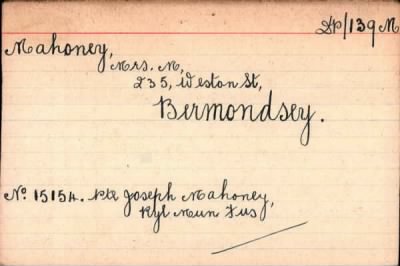 Dp/139 M
Mahoney,
Mrs. M,
235, Weston St,
Bermondsey.
No. 15154. Pte Joseph Mahoney,
Ryl Mun Fus,